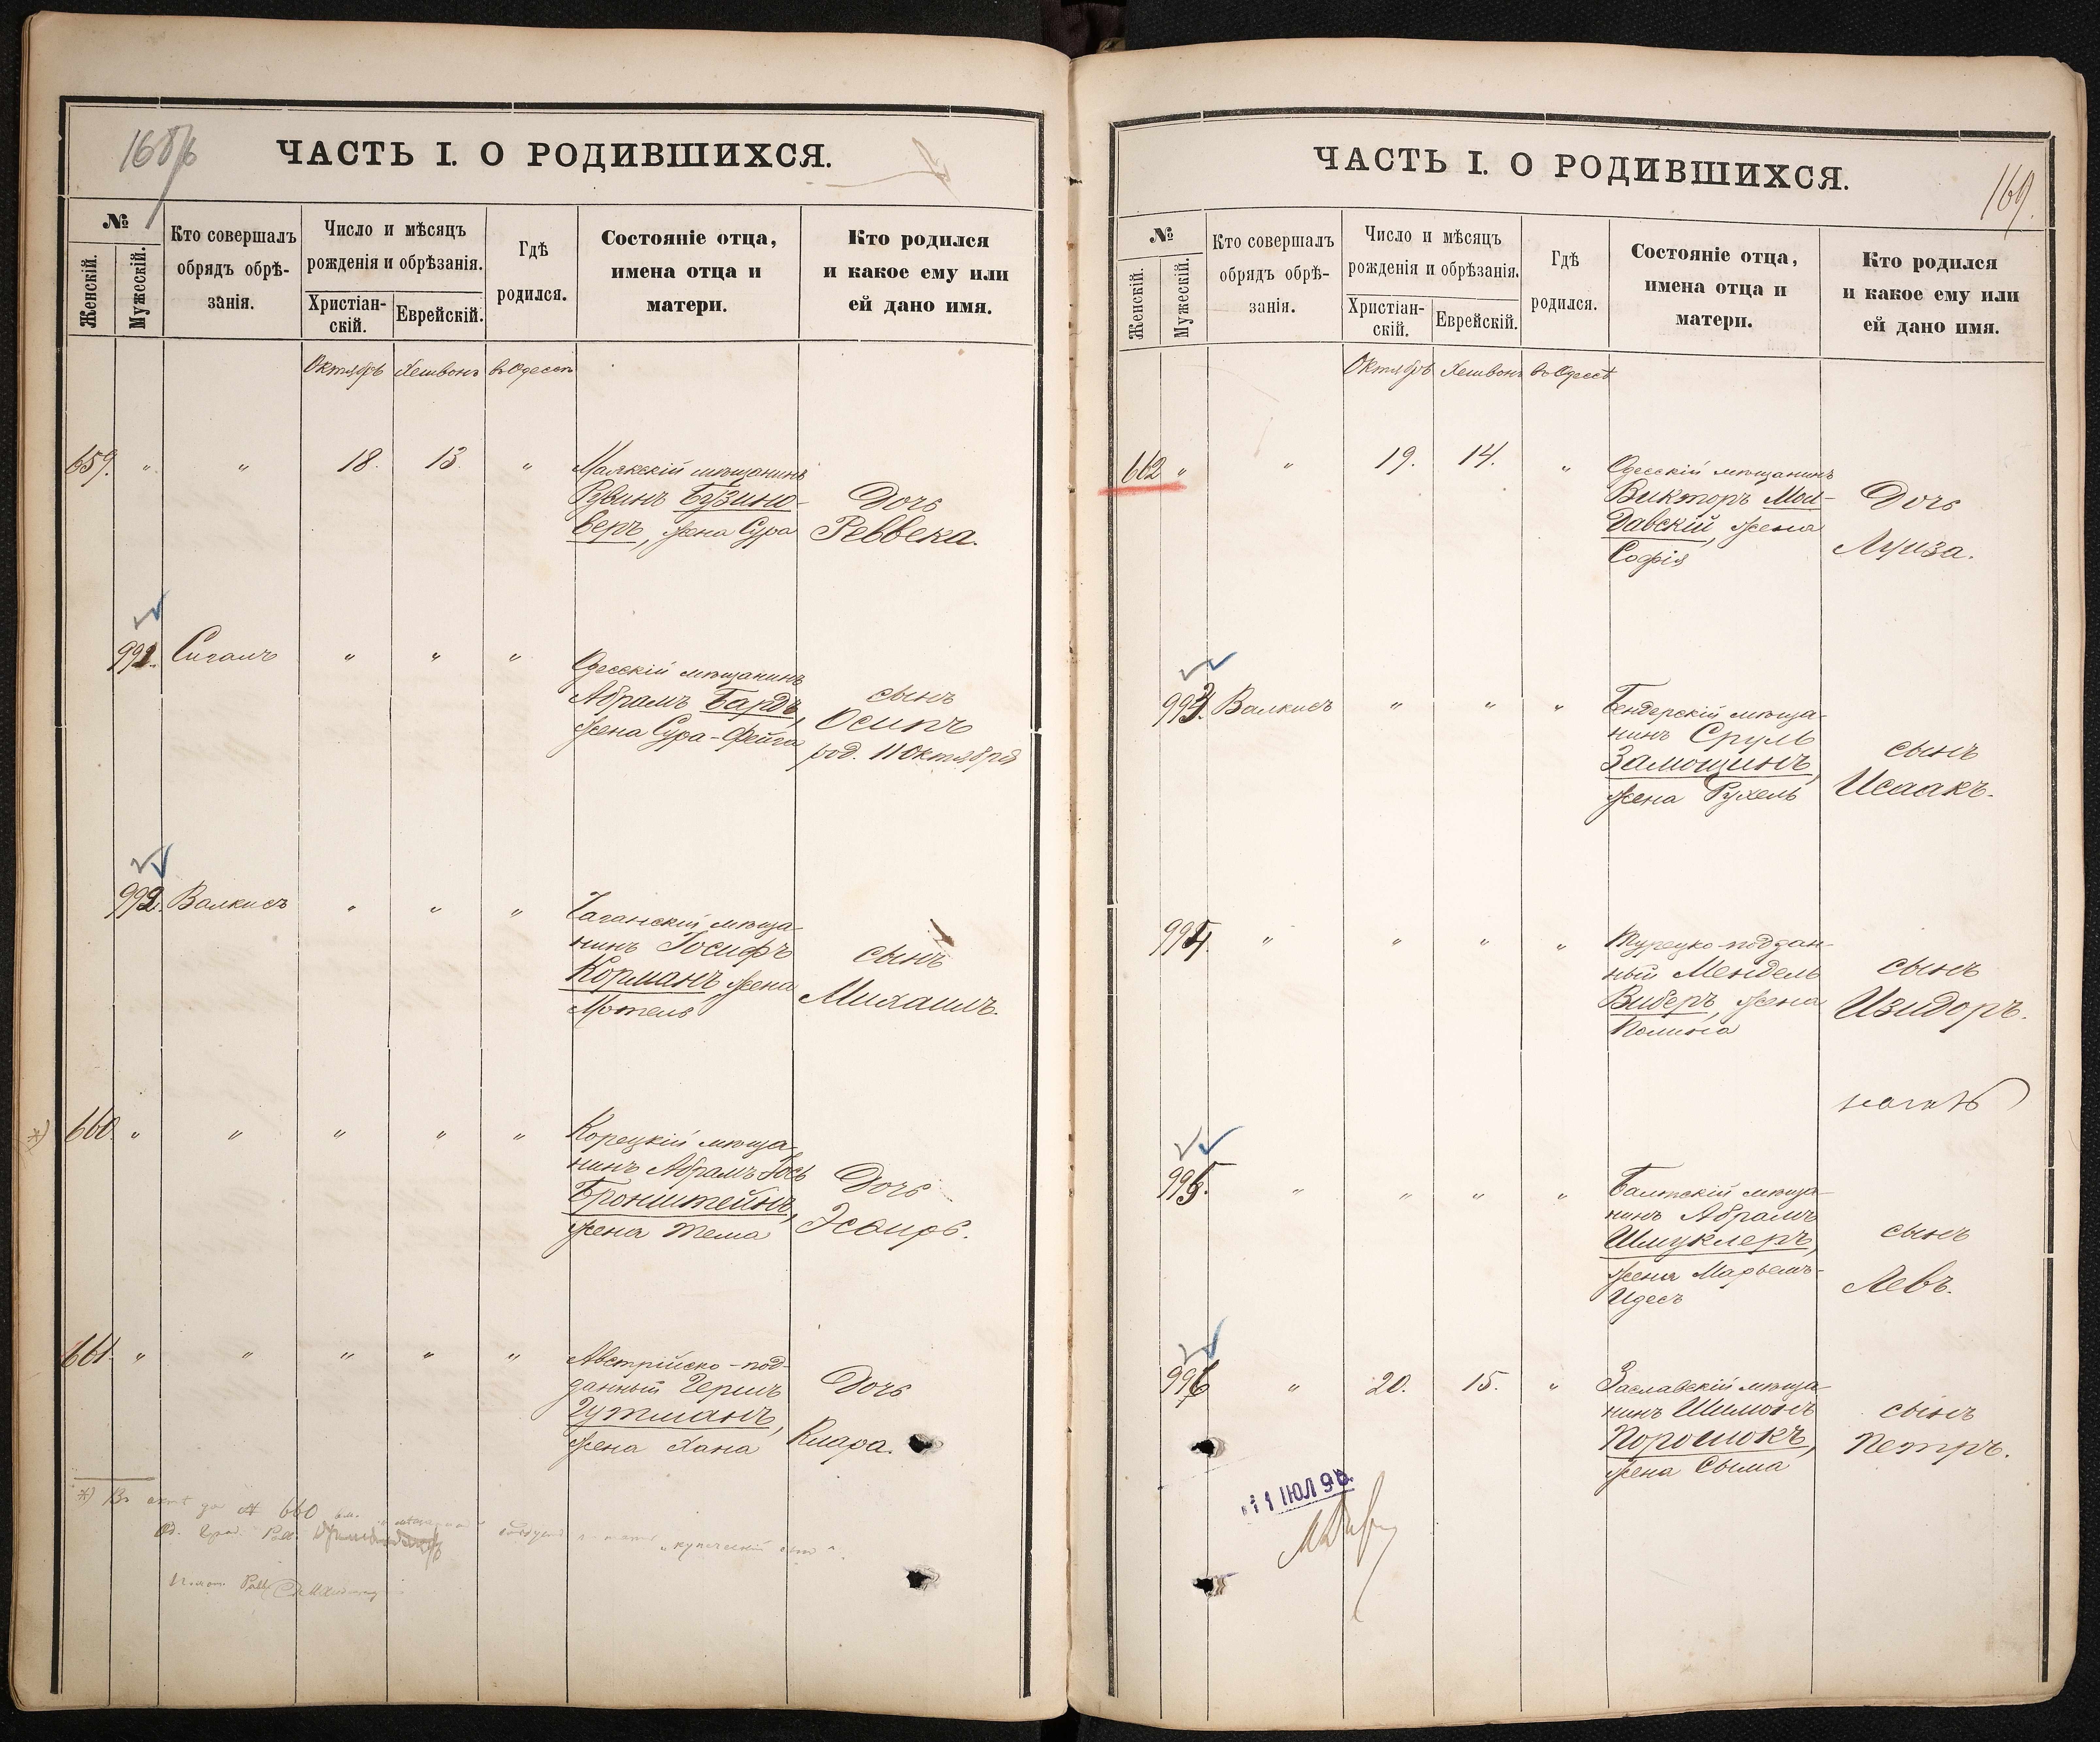 168/б
ЧАСТЬ I. О РОДИВШИХСЯ.
№
Женскій.
Мужескій.
Кто совершалъ
обрядъ обрѣ-
занія.
Число и мѣсяцъ
рожденія и обрѣзанія.
Христіан-
скій.
Еврейскій.
Гдѣ
родился.
Состояніе отца,
имена отца и
матери.
Кто родился
и какое ему или
ей дано имя.
Октябрь Хешвонъ въ Одессѣ
659. " " 18. 13. "
Маякскій мѣщанинъ
Рувинъ Бузино-
веръ, жена Сура
Дочь
Реввека.
991. Сигалъ " " "
Одесскій мѣщанинъ
Абрамъ Бардъ,
жена Сура-Фейга
сынъ
Осипъ
род. 11 Октября
992. Валкисъ " " "
Чаганскій мѣща-
нинъ Іосифъ
Корманъ жена
Мотель
сынъ
Михаилъ.
*) 660. " " " " "
Корецкій мѣща-
нинъ Абрамъ Іось
Бронштейнъ,
жена Тема
Дочь
Эсѳирь.
661. " " " " "
Австрійско-под-
данный Гершъ
Гутманъ,
жена Хана
Дочь
Клара.
*) Въ 660
"купеческій сынъ".
ЧАСТЬ I. О РОДИВШИХСЯ.
169.
№
Женскій.
Мужескій.
Кто совершалъ
обрядъ обрѣ-
занія.
Число и мѣсяцъ
рожденія и обрѣзанія.
Христіан-
скій.
Еврейскій.
Гдѣ
родился.
Состояніе отца,
имена отца и
матери.
Кто родился
и какое ему или
ей дано имя.
Октябрь Хешвонъ въ Одессѣ
662 " " 19. 14. "
Одесскій мѣщанинъ
Викторъ Мол-
давскій, жена
Софія
Дочь
Луиза.
993. Валкисъ " " "
Бендерскій мѣща-
нинъ Сруль
Замощинъ,
жена Рухель
сынъ
Исаакъ.
994. " " " "
Турецко-поддан-
ный Мендель
Виберъ, жена
Полина
сынъ
Изидоръ.
995. " " " "
Балтскій мѣща-
нинъ Абрамъ
Шмуклеръ,
жена Марьемъ-
Идесъ
сынъ
Левъ.
996 " 20. 15. "
Заславскій мѣща-
нинъ Шимонъ
Порошокъ,
жена Сыма
сынъ
Петръ.
11 ІЮЛ 96.